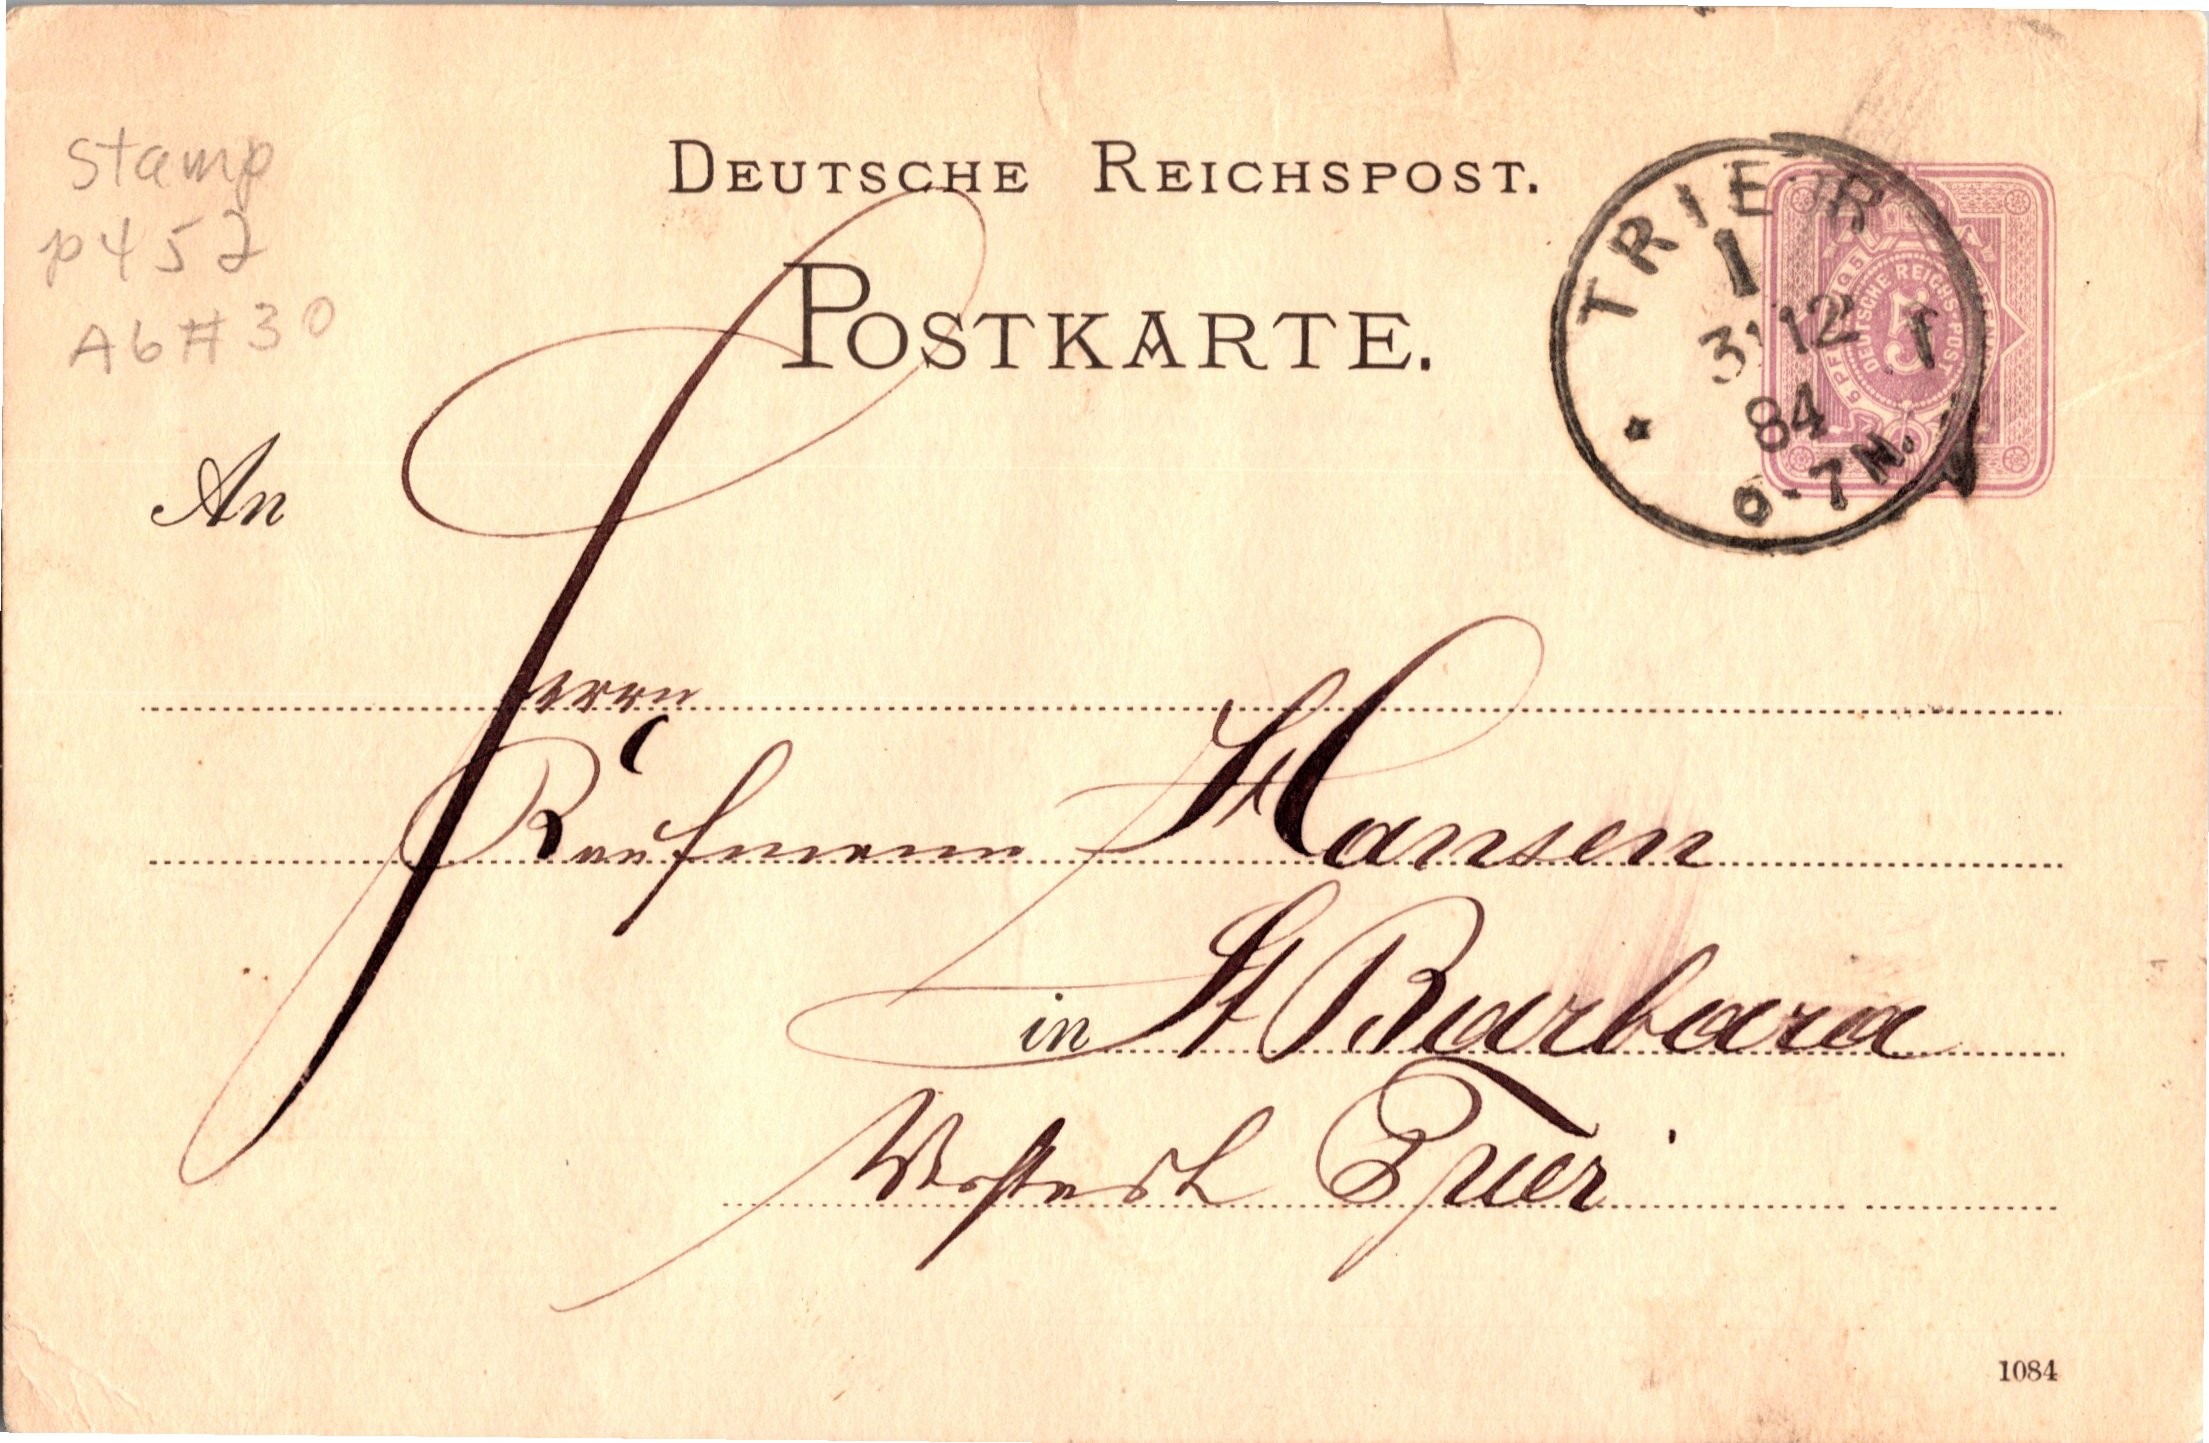 stamp
p 452
A6 # 30
DEUTSCHE REICHSPOST.
POSTKARTE.
TRIER
1
3 12
84
6-7 N.
1
5 PF
DEUTSCHE REICHS-POST
5
An
Herrn
Kaufmann St Hansen
in St Barbara
Trier
1084